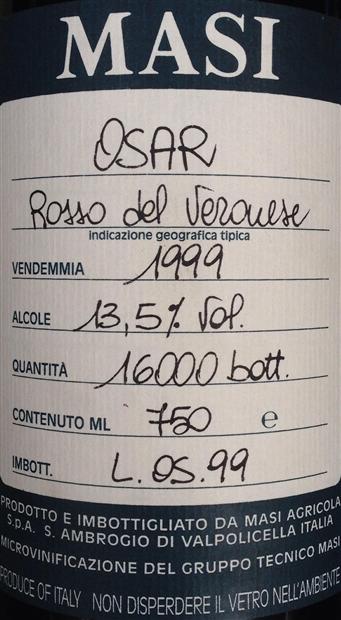 MASI
OSAR
Rosso del Veronese
indicazione geografica tipica
VENDEMMIA 1999
ALCOLE 13,5% Vol.
QUANTITÀ 16000 bott.
CONTENUTO ML 750 e
IMBOTT. L.OS.99
PRODOTTO E IMBOTTIGLIATO DA MASI AGRICOLA
S.p.A. S. AMBROGIO DI VALPOLICELLA ITALIA
MICROVINIFICAZIONE DEL GRUPPO TECNICO MASI
PRODUCE OF ITALY NON DISPERDERE IL VETRO NELL'AMBIENTE